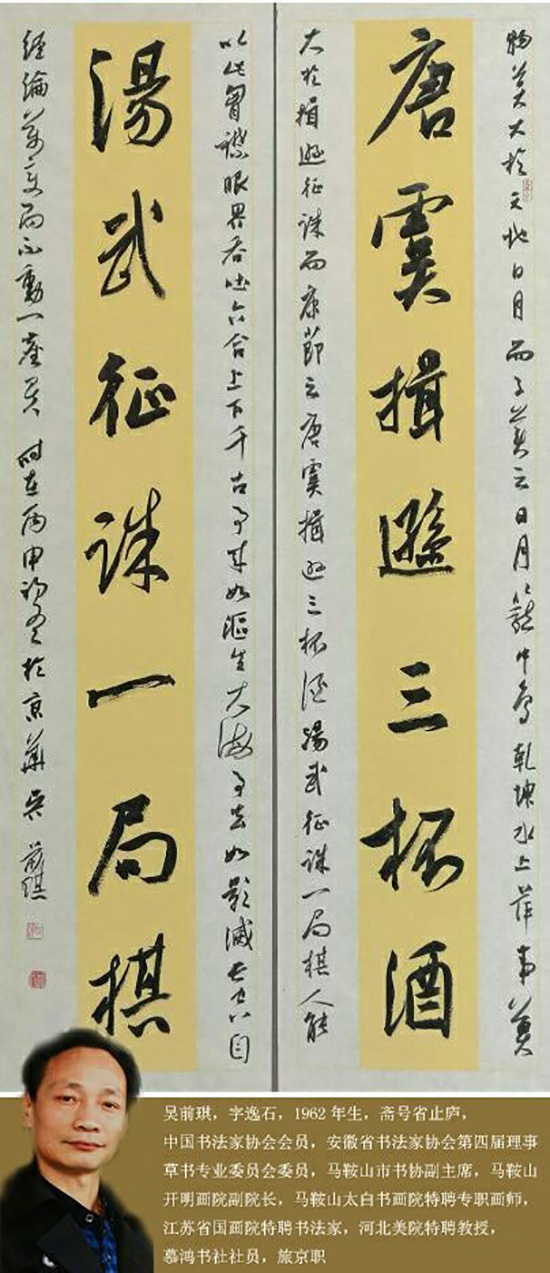 物莫大於天地日月而子美云日月籠中鳥乾坤水上萍事莫
唐虞揖遜三杯酒
大於揖遜征誅而康節云唐虞揖遜三杯酒湯武征誅一局棋人能
以此胷襟眼界吞吐六合上下千古事来如漚生大海事去如影滅長空自
湯武征誅一局棋
經綸萬変而不動一塵矣 時在丙申於京華吴前琪
吴前琪，字逸石，1962年生，斋号省止庐，
中国书法家协会会员，安徽省书法家协会第四届理事
草书专业委员会委员，马鞍山市书协副主席，马鞍山
开明画院副院长，马鞍山太白书画院特聘专职画师，
江苏省国画院特聘书法家，河北美院特聘教授，
慕鸿书社社员，旅京职